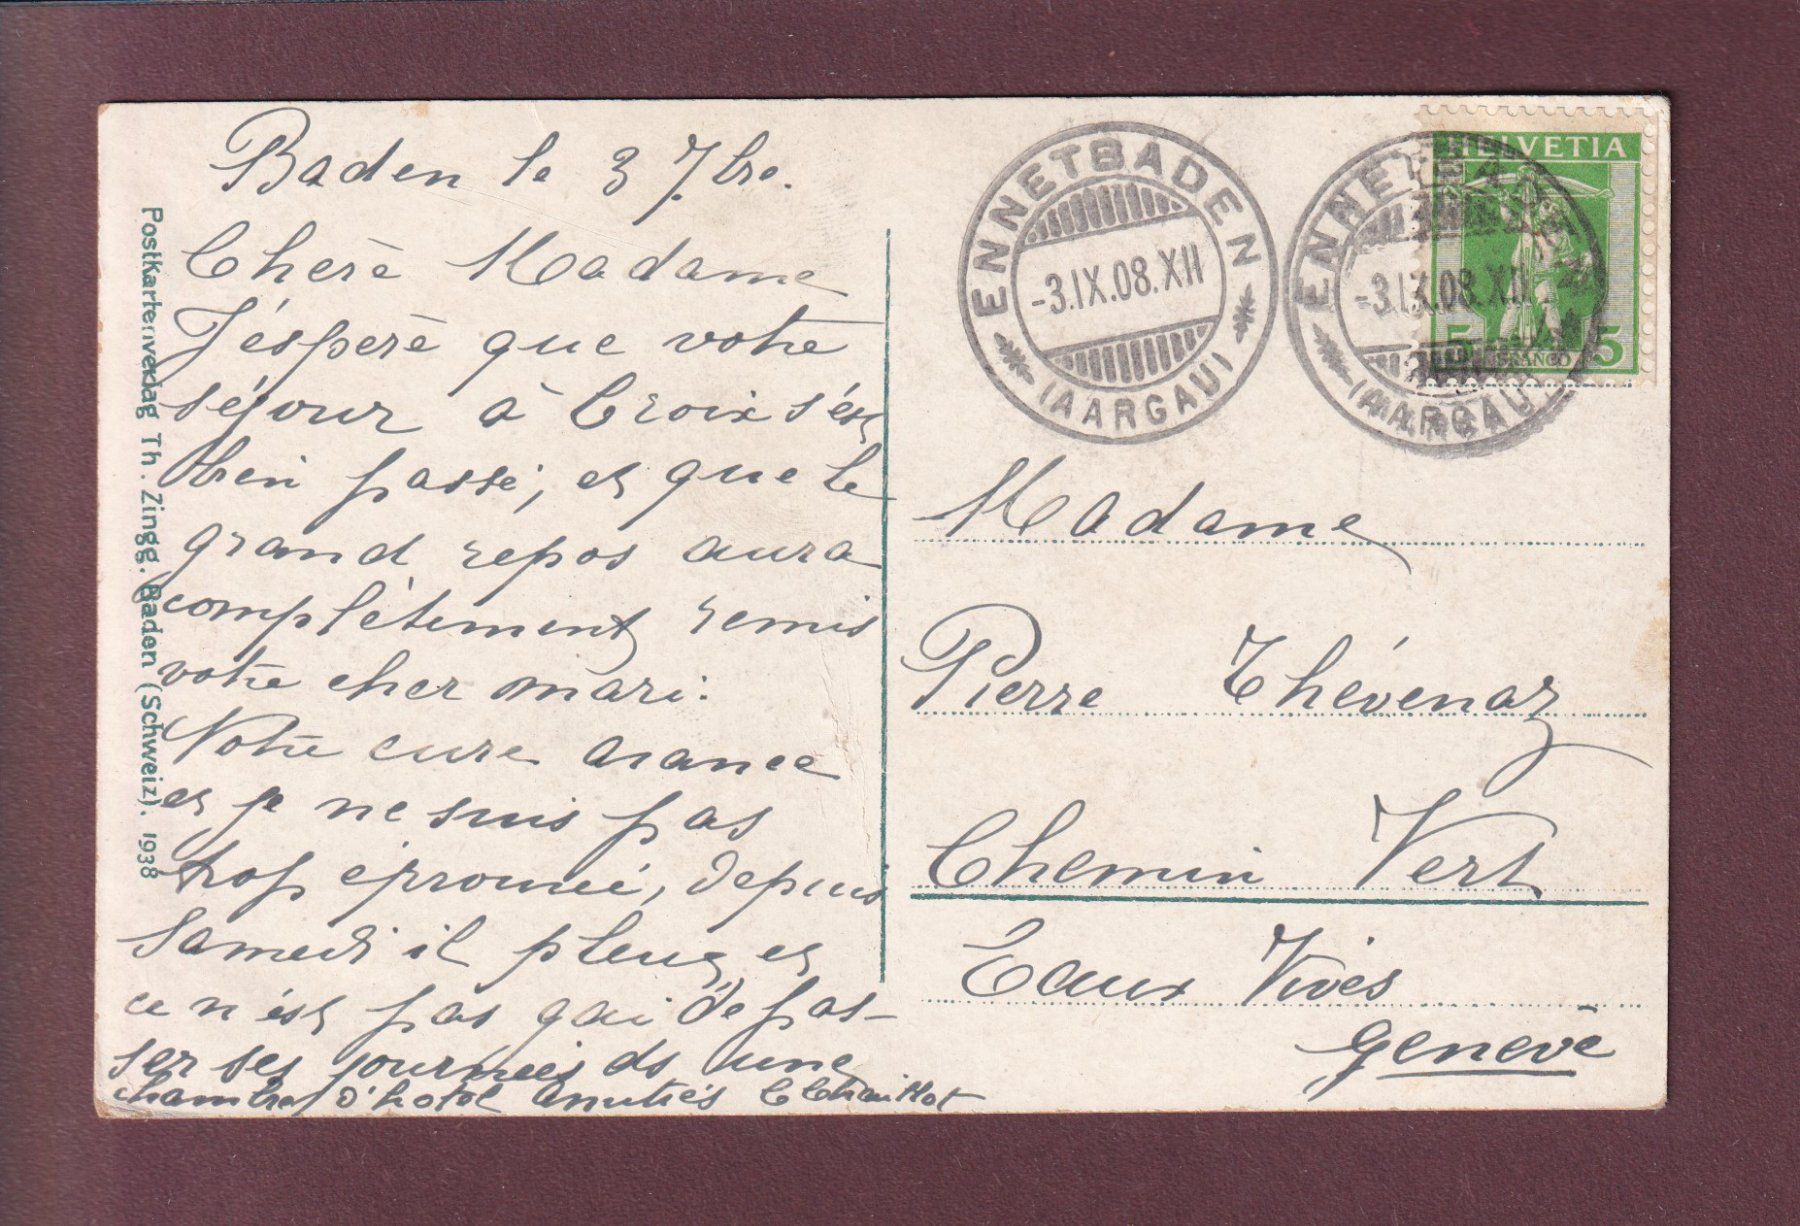 Baden le 3 7bre.
Chère Madame
J'éspère que votre
séjour à Croix s'est
bien passé, et que le
grand repos aura
complètement remis
votre cher mari.
Notre cure avance
et je ne suis pas
trop éprouvée, depuis
Samedi il pleut, et
ce n'est pas gai de pas-
ser ses journées ds une
chambre d'hotel Amitiés
Postkartenverlag Th. Zingg. Baden (Schweiz). 1938
ENNETBADEN
-3.IX.08.XII
(AARGAU)
ENNETBADEN
-3.IX.08.XII
(AARGAU)
HELVETIA
5 FRANCO 5
Madame
Pierre Thévenaz
Chemin Vert
Eaux Vives
Genève